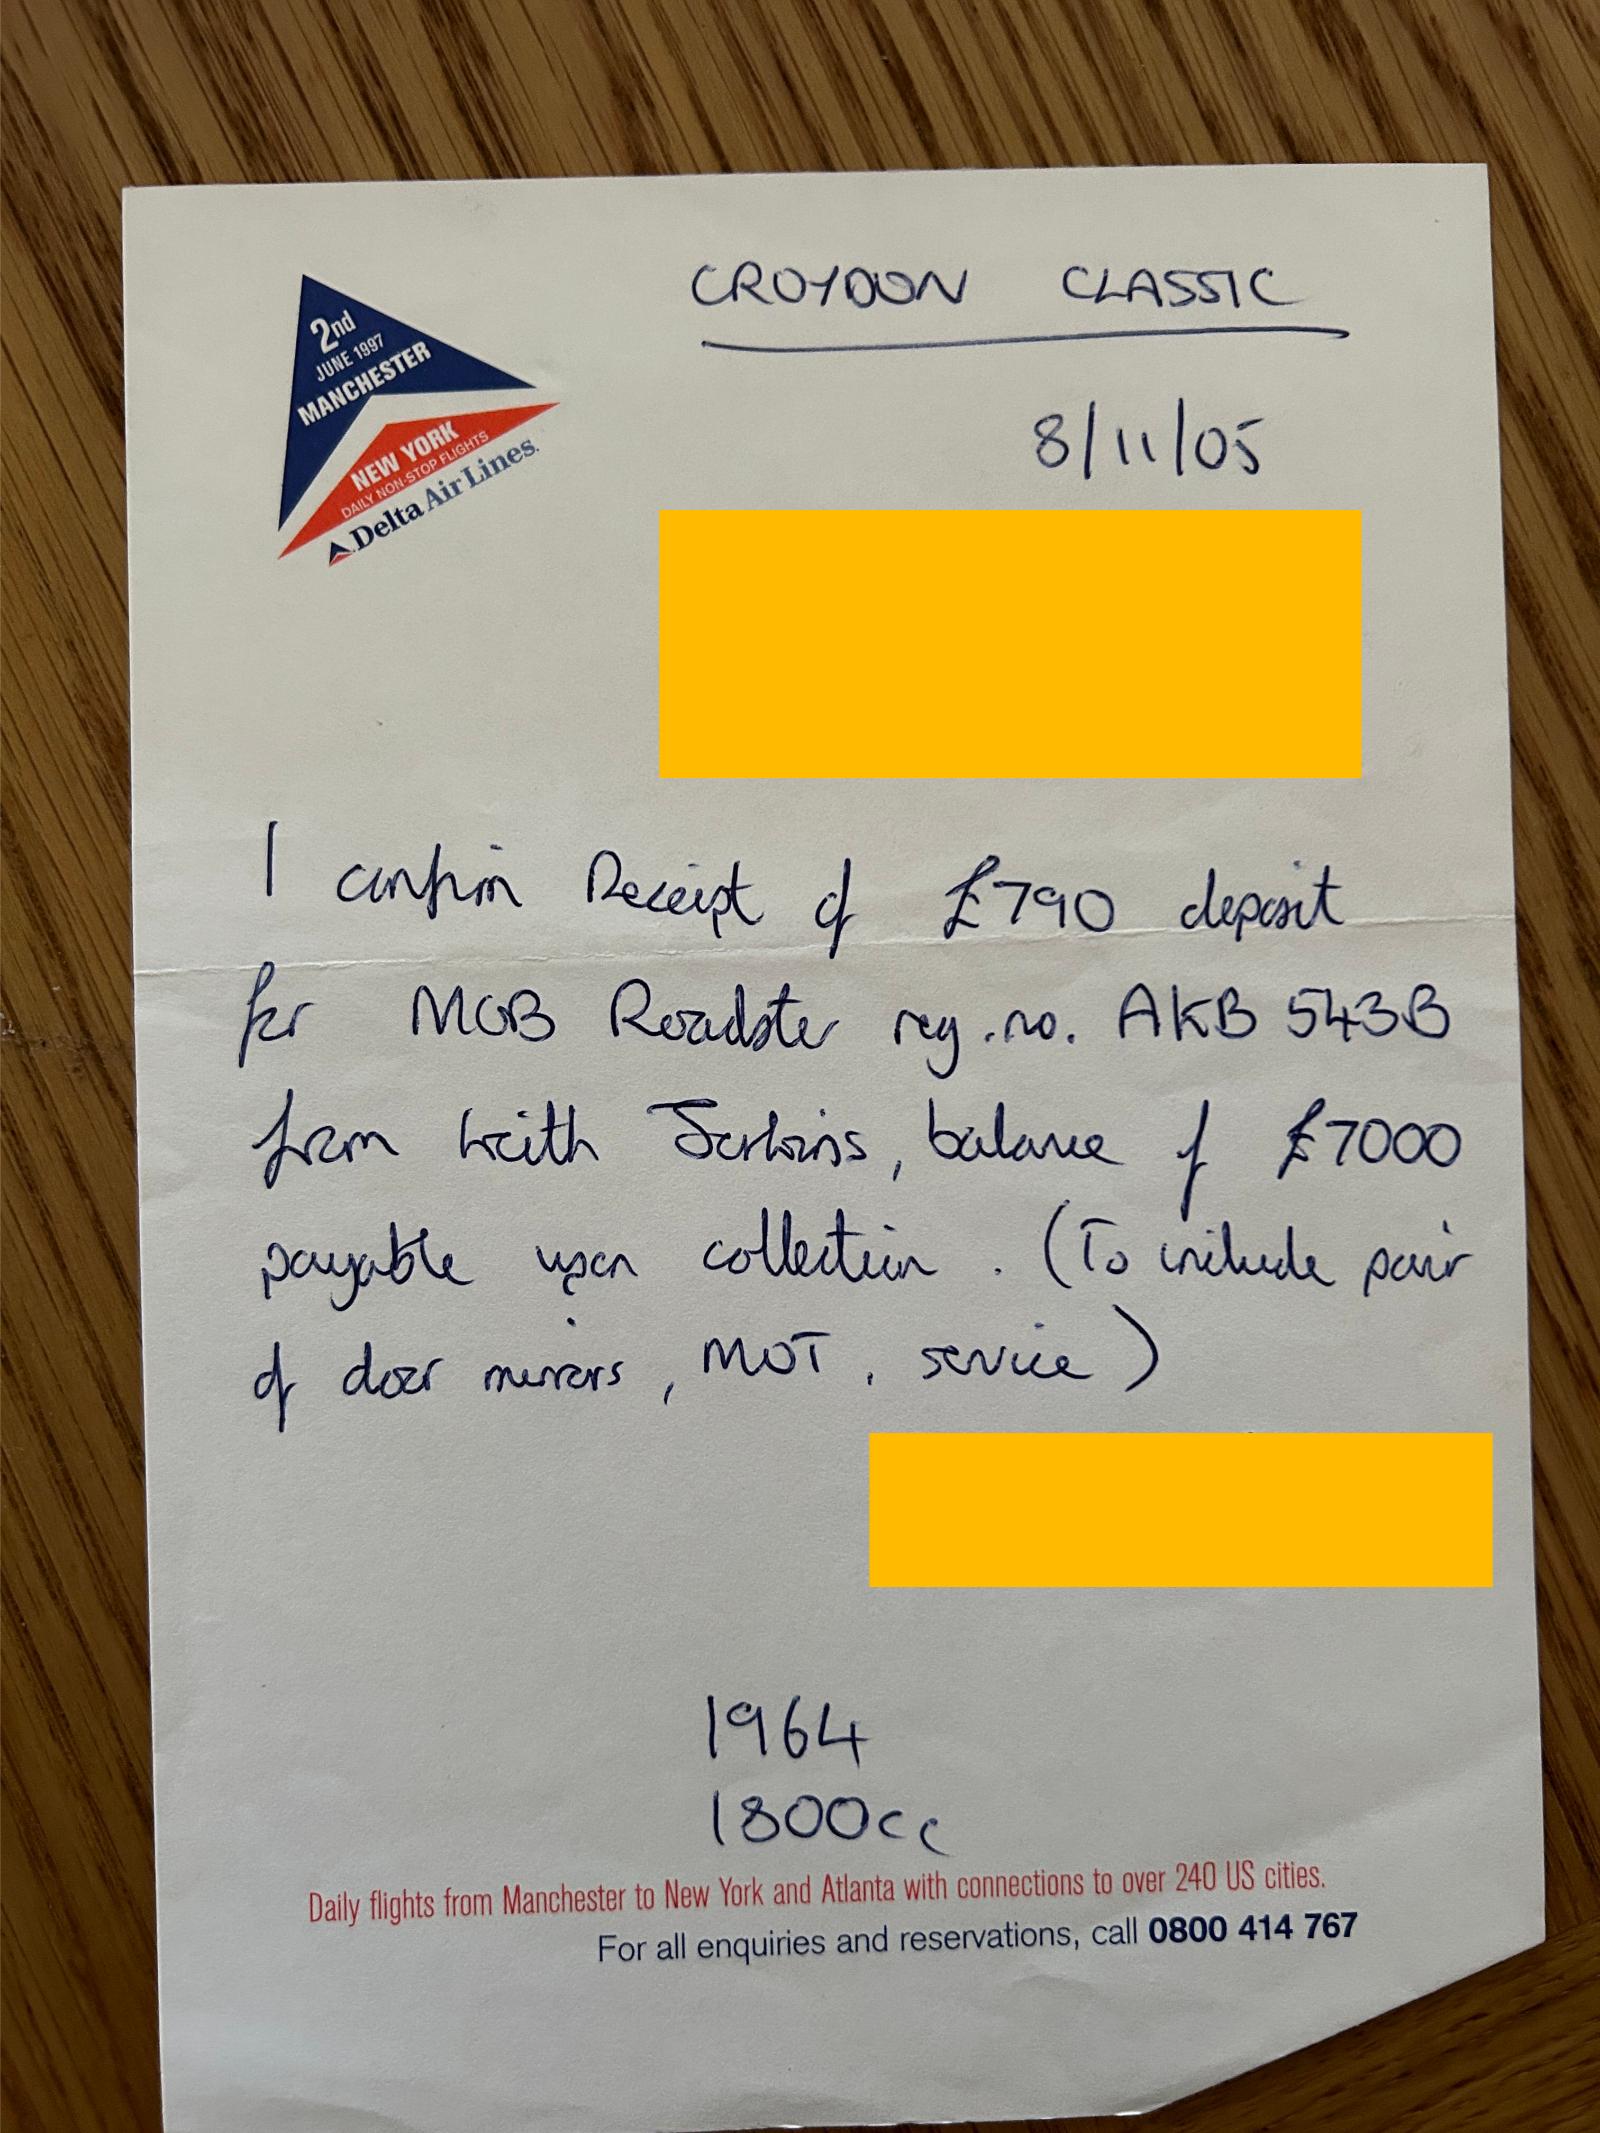 CROYDON CLASSIC
2nd
JUNE 1997
MANCHESTER
NEW YORK
DAILY NON-STOP FLIGHTS
Delta Air Lines
8/11/05
I confirm Receipt of £790 deposit
for MGB Roadster reg. no. AKB 543B
from Keith Jenkins, balance of £7000
payable upon collection. (To include pair
of door mirrors, MOT, service)
1964
1800cc
Daily flights from Manchester to New York and Atlanta with connections to over 240 US cities.
For all enquiries and reservations, call 0800 414 767